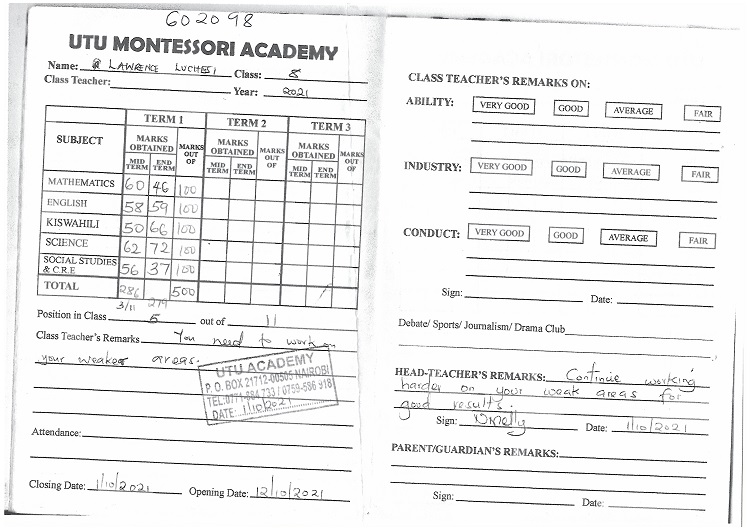 602098
UTU MONTESSORI ACADEMY
Name: LAWRENCE LUCHESI Class: 8
Class Teacher: Year: 2021
SUBJECT TERM 1 TERM 2 TERM 3
MARKS OBTAINED MARKS OUT OF MARKS OBTAINED MARKS OUT OF MARKS OBTAINED MARKS OUT OF
MID TERM END TERM MID TERM END TERM MID TERM END TERM
MATHEMATICS 60 46 100
ENGLISH 58 59 100
KISWAHILI 50 66 100
SCIENCE 62 72 100
SOCIAL STUDIES & C.R.E 56 37 100
TOTAL 286 500
3/11 279
Position in Class 5 out of 11
Class Teacher's Remarks You need to work on
your weaker areas.
UTU ACADEMY
P. O. BOX 21712-00505 NAIROBI
TEL:0771 884 733 / 0759-586 918
DATE: 1/10/2021
Attendance:
Closing Date: 1/10/2021 Opening Date: 12/10/2021
CLASS TEACHER'S REMARKS ON:
ABILITY: VERY GOOD GOOD AVERAGE FAIR
INDUSTRY: VERY GOOD GOOD AVERAGE FAIR
CONDUCT: VERY GOOD GOOD AVERAGE FAIR
Sign: Date:
Debate/ Sports/ Journalism/ Drama Club
HEAD-TEACHER'S REMARKS: Continue working
harder on your weak areas for
good results.
Sign: Date: 1/10/2021
PARENT/GUARDIAN'S REMARKS:
Sign: Date: